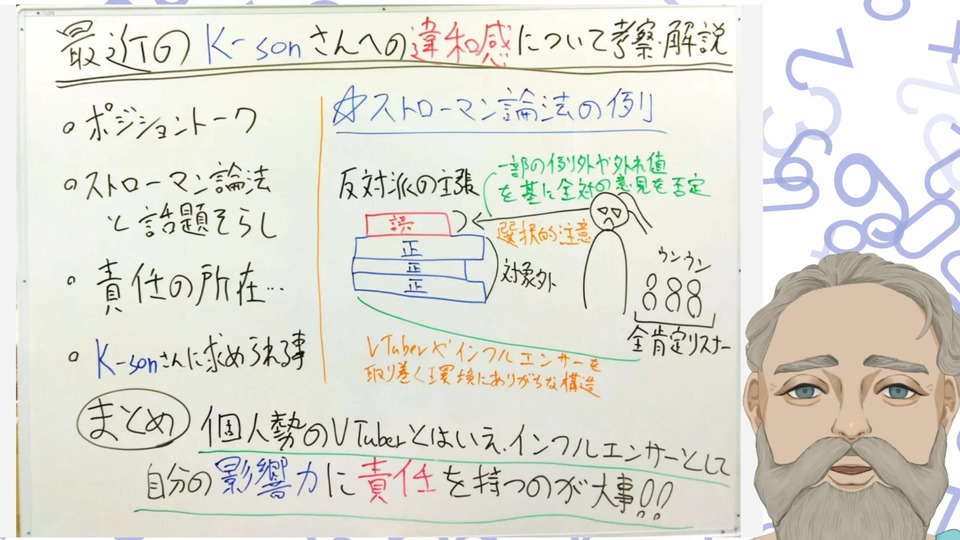 最近のK-sonさんへの違和感について考察・解説
ポジショントーク
ストローマン論法
と話題そらし
責任の所在…
K-sonさんに求められる事
☆ストローマン論法の例
反対派の主張
一部の例外や外れ値
を基に全対の意見を否定
誤
正
正
正
選択的注意
対象外
ウンウン
全肯定リスナー
VTuberやインフルエンサーを
取り巻く環境にありがちな構造
まとめ
個人勢のVTuberとはいえ、インフルエンサーとして
自分の影響力に責任を持つのが大事!!